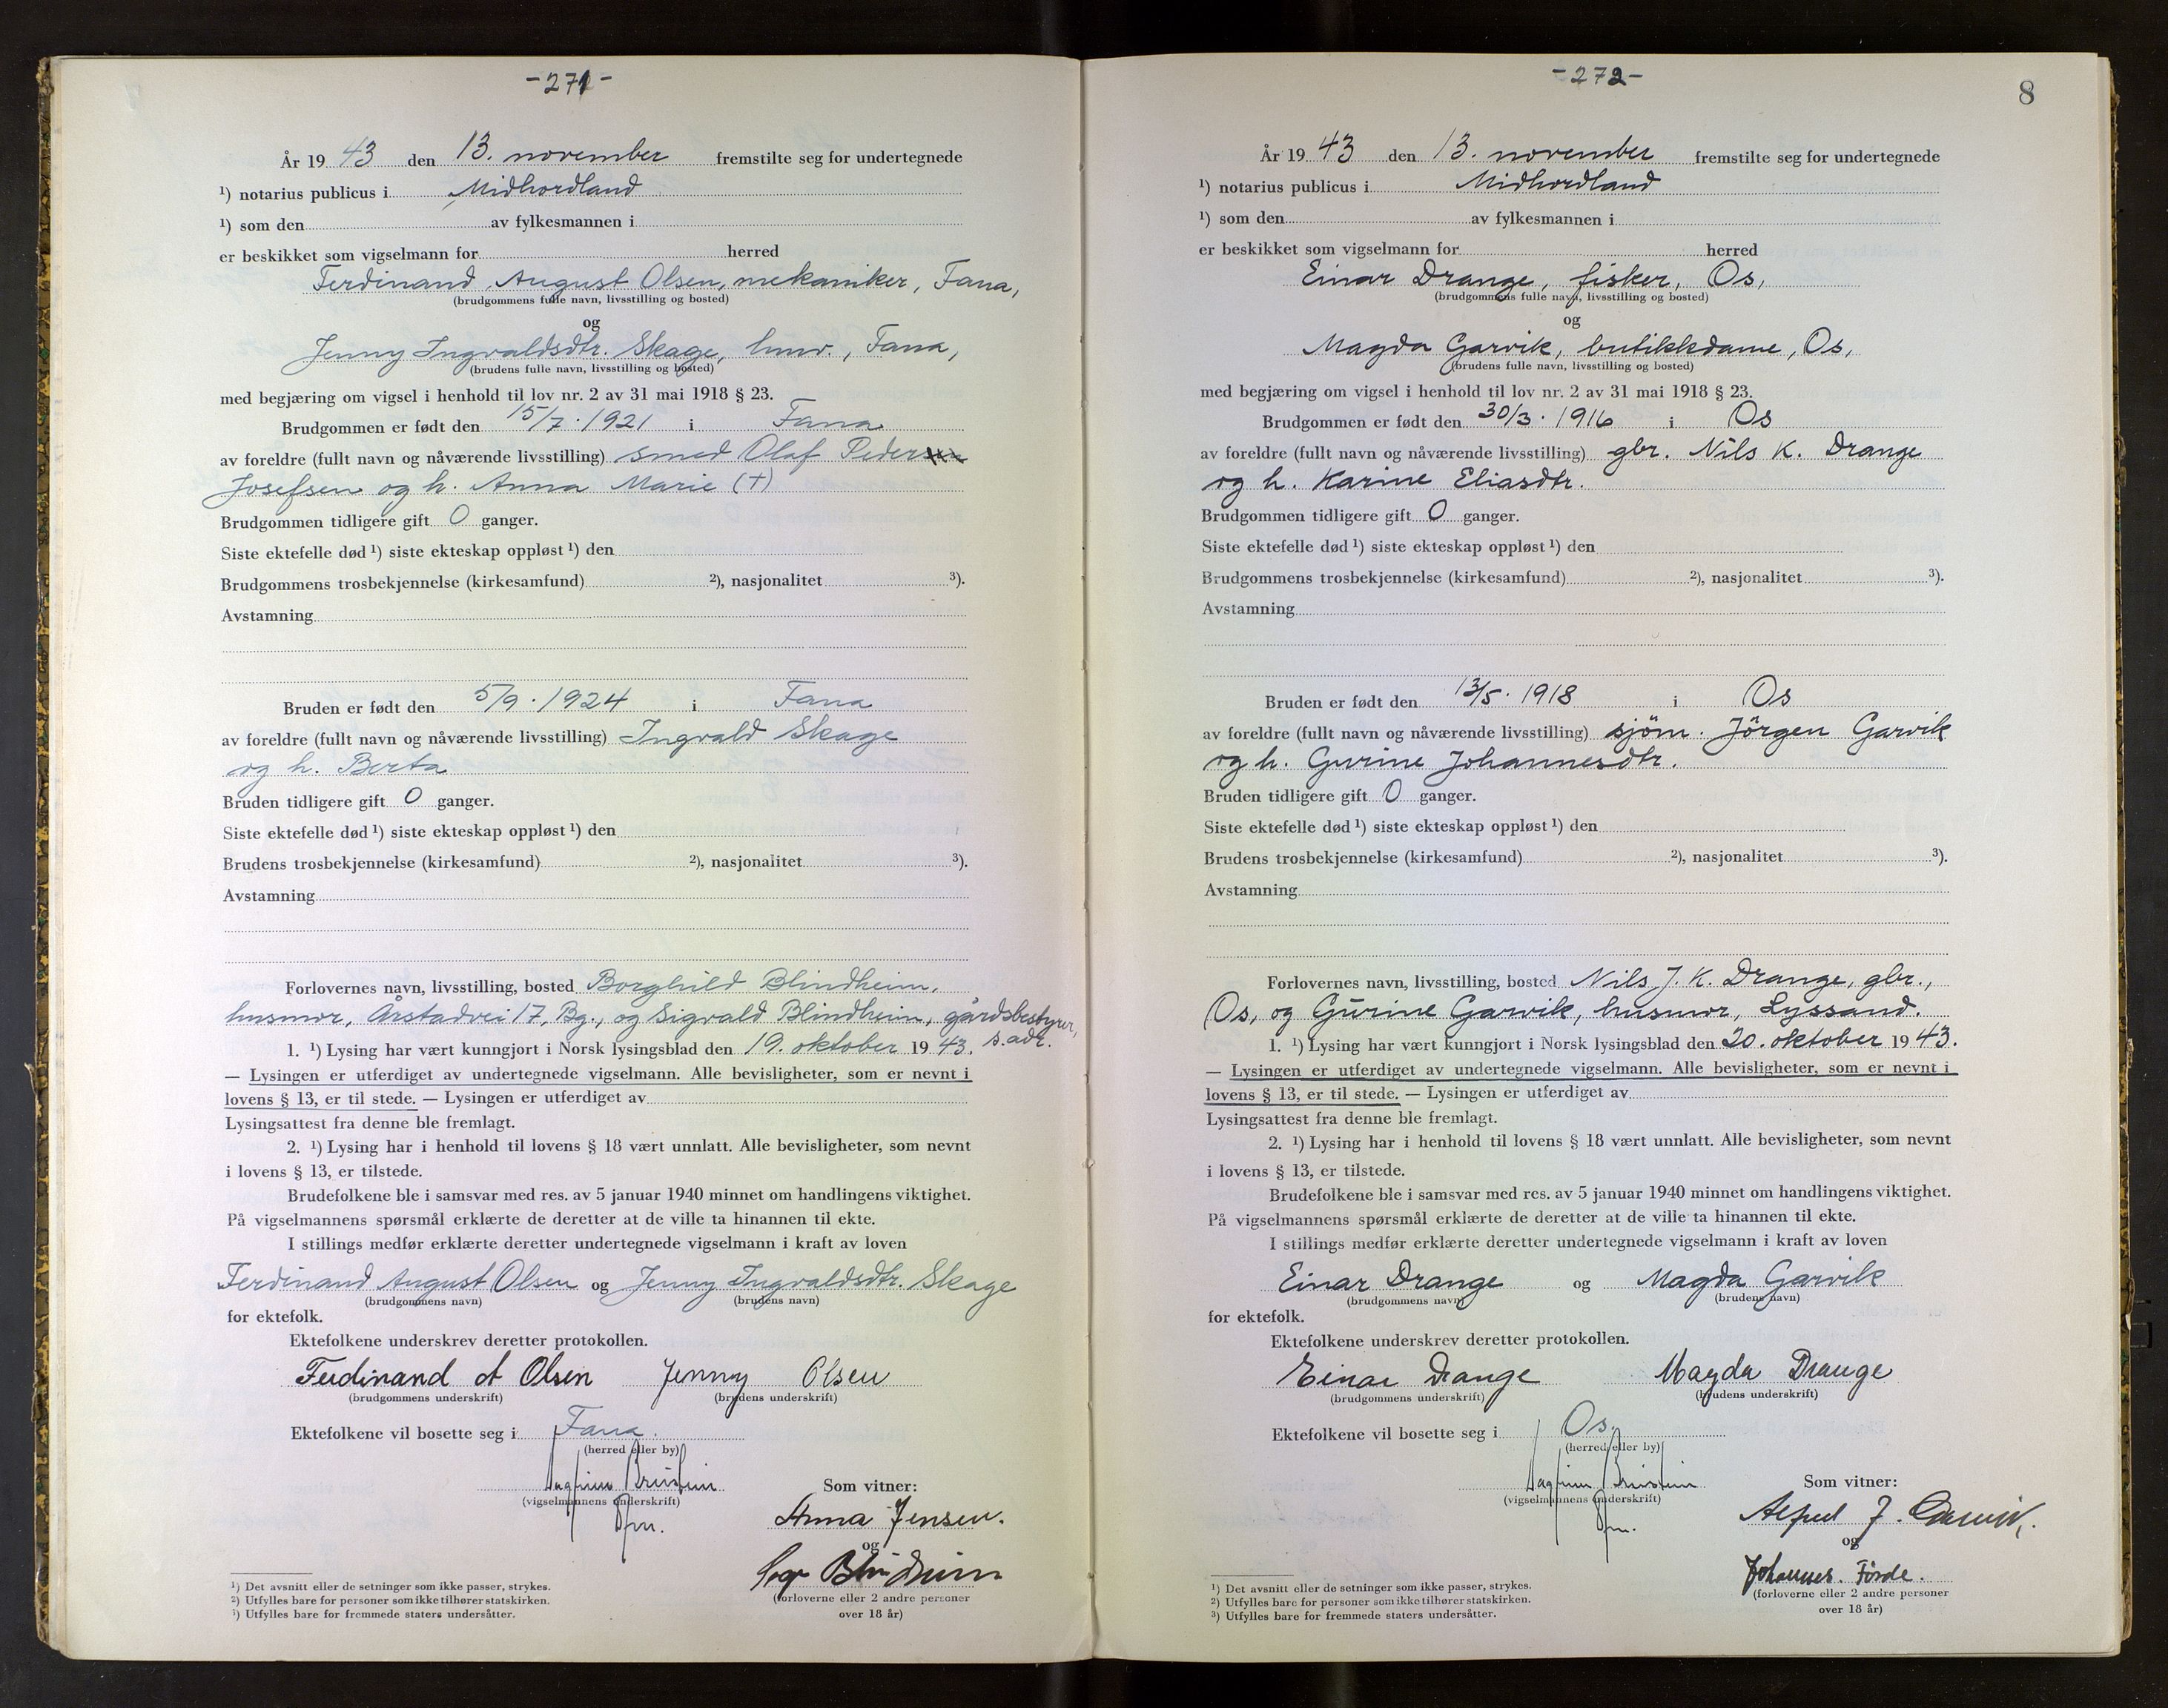 -271-
År 19 43 den 13. november fremstilte seg for undertegnede
¹) notarius publicus i Midhordland
¹) som den av fylkesmannen i
er beskikket som vigselmann for herred
Ferdinand August Olsen, mekaniker, Fana,
(brudgommens fulle navn, livsstilling og bosted)
og
Jenny Ingvaldsdtr. Skage, hmv., Fana,
(brudens fulle navn, livsstilling og bosted)
med begjæring om vigsel i henhold til lov nr. 2 av 31 mai 1918 § 23.
Brudgommen er født den 15/7. 1921 i Fana
av foreldre (fullt navn og nåværende livsstilling) smed Olaf Peder
Josefsen og h. Anna Marie (+)
Brudgommen tidligere gift 0 ganger.
Siste ektefelle død ¹) siste ekteskap oppløst ¹) den
Brudgommens trosbekjennelse (kirkesamfund) ²), nasjonalitet ³).
Avstamning
Bruden er født den 5/9. 1924 i Fana
av foreldre (fullt navn og nåværende livsstilling) Ingvald Skage
og h. Berta
Bruden tidligere gift 0 ganger.
Siste ektefelle død ¹) siste ekteskap oppløst ¹) den
Brudens trosbekjennelse (kirkesamfund) ²), nasjonalitet ³).
Avstamning
Forlovernes navn, livsstilling, bosted Borghild Blindheim,
husmor, Årstadvei 17, Bg., og Sigvald Blindheim, gårdsbestyrer,
s. adr.
1. ¹) Lysing har vært kunngjort i Norsk lysingsblad den 19. oktober 19 43.
— Lysingen er utferdiget av undertegnede vigselmann. Alle bevisligheter, som er nevnt i
lovens § 13, er til stede. — Lysingen er utferdiget av
Lysingsattest fra denne ble fremlagt.
2. ¹) Lysing har i henhold til lovens § 18 vært unnlatt. Alle bevisligheter, som nevnt
i lovens § 13, er tilstede.
Brudefolkene ble i samsvar med res. av 5 januar 1940 minnet om handlingens viktighet.
På vigselmannens spørsmål erklærte de deretter at de ville ta hinannen til ekte.
I stillings medfør erklærte deretter undertegnede vigselmann i kraft av loven
Ferdinand August Olsen og Jenny Ingvaldsdtr. Skage
(brudgommens navn) (brudens navn)
for ektefolk.
Ektefolkene underskrev deretter protokollen.
Ferdinand A Olsen Jenny Olsen
(brudgommens underskrift) (brudens underskrift)
Ektefolkene vil bosette seg i Fana.
(herred eller by)
(vigselmannens underskrift)
Som vitner:
Anna Jensen.
og
Blindheim
(forloverne eller 2 andre personer
over 18 år)
¹) Det avsnitt eller de setninger som ikke passer, strykes.
²) Utfylles bare for personer som ikke tilhører statskirken.
³) Utfylles bare for fremmede staters undersåtter.
-272-
8
År 19 43 den 13. november fremstilte seg for undertegnede
¹) notarius publicus i Midhordland
¹) som den av fylkesmannen i
er beskikket som vigselmann for herred
Einar Drange, fisker, Os,
(brudgommens fulle navn, livsstilling og bosted)
og
Magda Garvik, butikkdame, Os,
(brudens fulle navn, livsstilling og bosted)
med begjæring om vigsel i henhold til lov nr. 2 av 31 mai 1918 § 23.
Brudgommen er født den 30/3. 1916 i Os
av foreldre (fullt navn og nåværende livsstilling) gbr. Nils K. Drange
og h. Karine Eliasdtr.
Brudgommen tidligere gift 0 ganger.
Siste ektefelle død ¹) siste ekteskap oppløst ¹) den
Brudgommens trosbekjennelse (kirkesamfund) ²), nasjonalitet ³).
Avstamning
Bruden er født den 13/5. 1918 i Os
av foreldre (fullt navn og nåværende livsstilling) sjöm. Jörgen Garvik
og h. Gurine Johannesdtr.
Bruden tidligere gift 0 ganger.
Siste ektefelle død ¹) siste ekteskap oppløst ¹) den
Brudens trosbekjennelse (kirkesamfund) ²), nasjonalitet ³).
Avstamning
Forlovernes navn, livsstilling, bosted Nils J. K. Drange, gbr.,
Os, og Gurine Garvik, husmor, Lyssand.
1. ¹) Lysing har vært kunngjort i Norsk lysingsblad den 20. oktober 19 43.
— Lysingen er utferdiget av undertegnede vigselmann. Alle bevisligheter, som er nevnt i
lovens § 13, er til stede. — Lysingen er utferdiget av
Lysingsattest fra denne ble fremlagt.
2. ¹) Lysing har i henhold til lovens § 18 vært unnlatt. Alle bevisligheter, som nevnt
i lovens § 13, er tilstede.
Brudefolkene ble i samsvar med res. av 5 januar 1940 minnet om handlingens viktighet.
På vigselmannens spørsmål erklærte de deretter at de ville ta hinannen til ekte.
I stillings medfør erklærte deretter undertegnede vigselmann i kraft av loven
Einar Drange og Magda Garvik
(brudgommens navn) (brudens navn)
for ektefolk.
Ektefolkene underskrev deretter protokollen.
Einar Drange Magda Drange
(brudgommens underskrift) (brudens underskrift)
Ektefolkene vil bosette seg i Os.
(herred eller by)
(vigselmannens underskrift)
Som vitner:
Alfred J. Garvik.
og
Johannes Förde.
(forloverne eller 2 andre personer
over 18 år)
¹) Det avsnitt eller de setninger som ikke passer, strykes.
²) Utfylles bare for personer som ikke tilhører statskirken.
³) Utfylles bare for fremmede staters undersåtter.